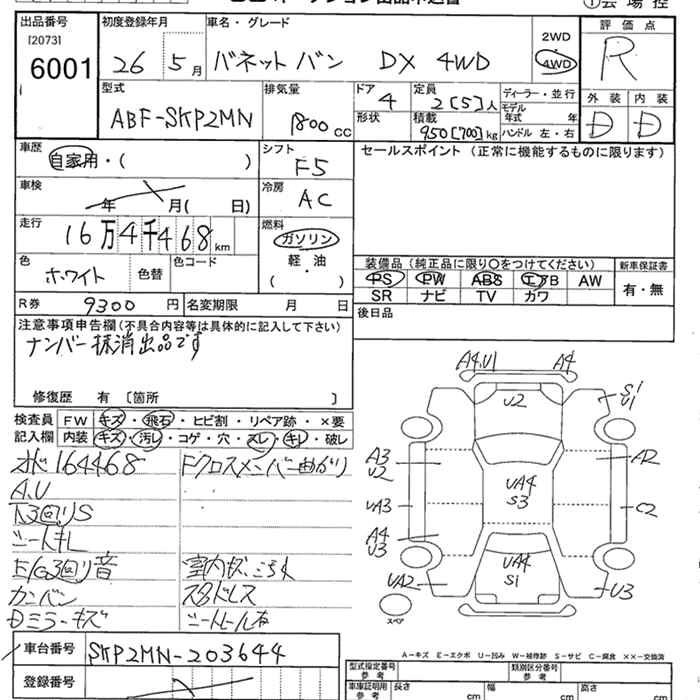 出品番号 初度登録年月 車名・グレード 2WD 評価点
[2073] 6001 26 5月 バネットバン DX 4WD 4WD R
型式 排気量 ドア 定員 ディーラー・並行 外装 内装
ABF-SKP2MN 1800cc 4 2[5]人 モデル年式 年 D D
形状 積載 950[700]kg ハンドル 左・右
車歴 自家用・( ) シフト F5 セールスポイント (正常に機能するものに限ります)
車検 年 月( 日) 冷房 AC
走行 16万4千468km 燃料 ガソリン
軽・油
( )
色 ホワイト 色替 色コード
装備品 (純正品に限り○をつけてください) 新車保証書
PS PW ABS エアB AW
SR ナビ TV カワ 有・無
R券 9300円 名変期限 月 日 後日品
注意事項申告欄 (不具合内容等は具体的に記入して下さい)
ナンバー抹消出品です
修復歴 有 [箇所 ]
検査員 FW キズ・飛石・ヒビ割・リペア跡・×要
記入欄 内装 キズ・汚レ・コゲ・穴・スレ・キレ・破レ
オド164468 Fクロスメンバー曲がり
A.U
下3回りS
シートキレ
E/G3回り音
カンバン スタドレス
Dミラーキズ シートレール右
A4.U1 A4
U2 S1 U1
A3 U2 A2
UA4 S3
UA3 C2
A4 U3
UA4 S1
UA2 U3
スペア
A-キズ E-エクボ U-凹み W-補修跡 S-サビ C-腐食 ××-交換済
車台番号 SKP2MN-203644
登録番号
型式指定番号 参考 類別区分番号 参考
車庫証明用 参考 長さ cm 幅 cm 高さ cm